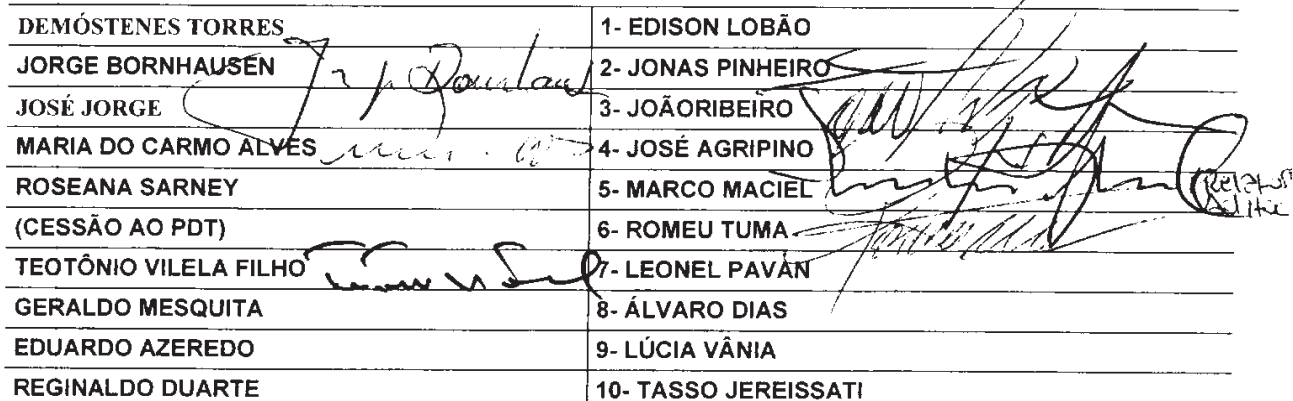 DEMÓSTENES TORRES 1- EDISON LOBÃO
JORGE BORNHAUSEN 2- JONAS PINHEIRO
JOSÉ JORGE 3- JOÃORIBEIRO
MARIA DO CARMO ALVES 4- JOSÉ AGRIPINO
ROSEANA SARNEY 5- MARCO MACIEL
(CESSÃO AO PDT) 6- ROMEU TUMA
TEOTÔNIO VILELA FILHO 7- LEONEL PAVAN
GERALDO MESQUITA 8- ÁLVARO DIAS
EDUARDO AZEREDO 9- LÚCIA VÂNIA
REGINALDO DUARTE 10- TASSO JEREISSATI